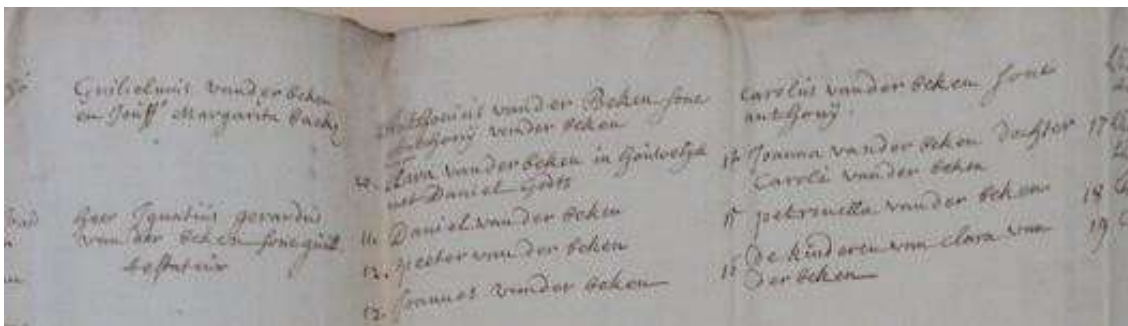 Guilielmus vander beken
en Jouff Margarita
Heer Ignatius gerardus
van der beken sone guil
testatur
Anthonius vander Beken sone
Anthony vander beken
10. Clara vander beken in houwelyck
met Daniel Godts
11. Daniel vander beken
12. peeter vander beken
13. Joannes vander beken
Carolus vander beken sone
anthony.
Joanna vander beken dochter
Caroli vander beken
petronella vander beken
de kinderen van clara van
der beken
17
18
19